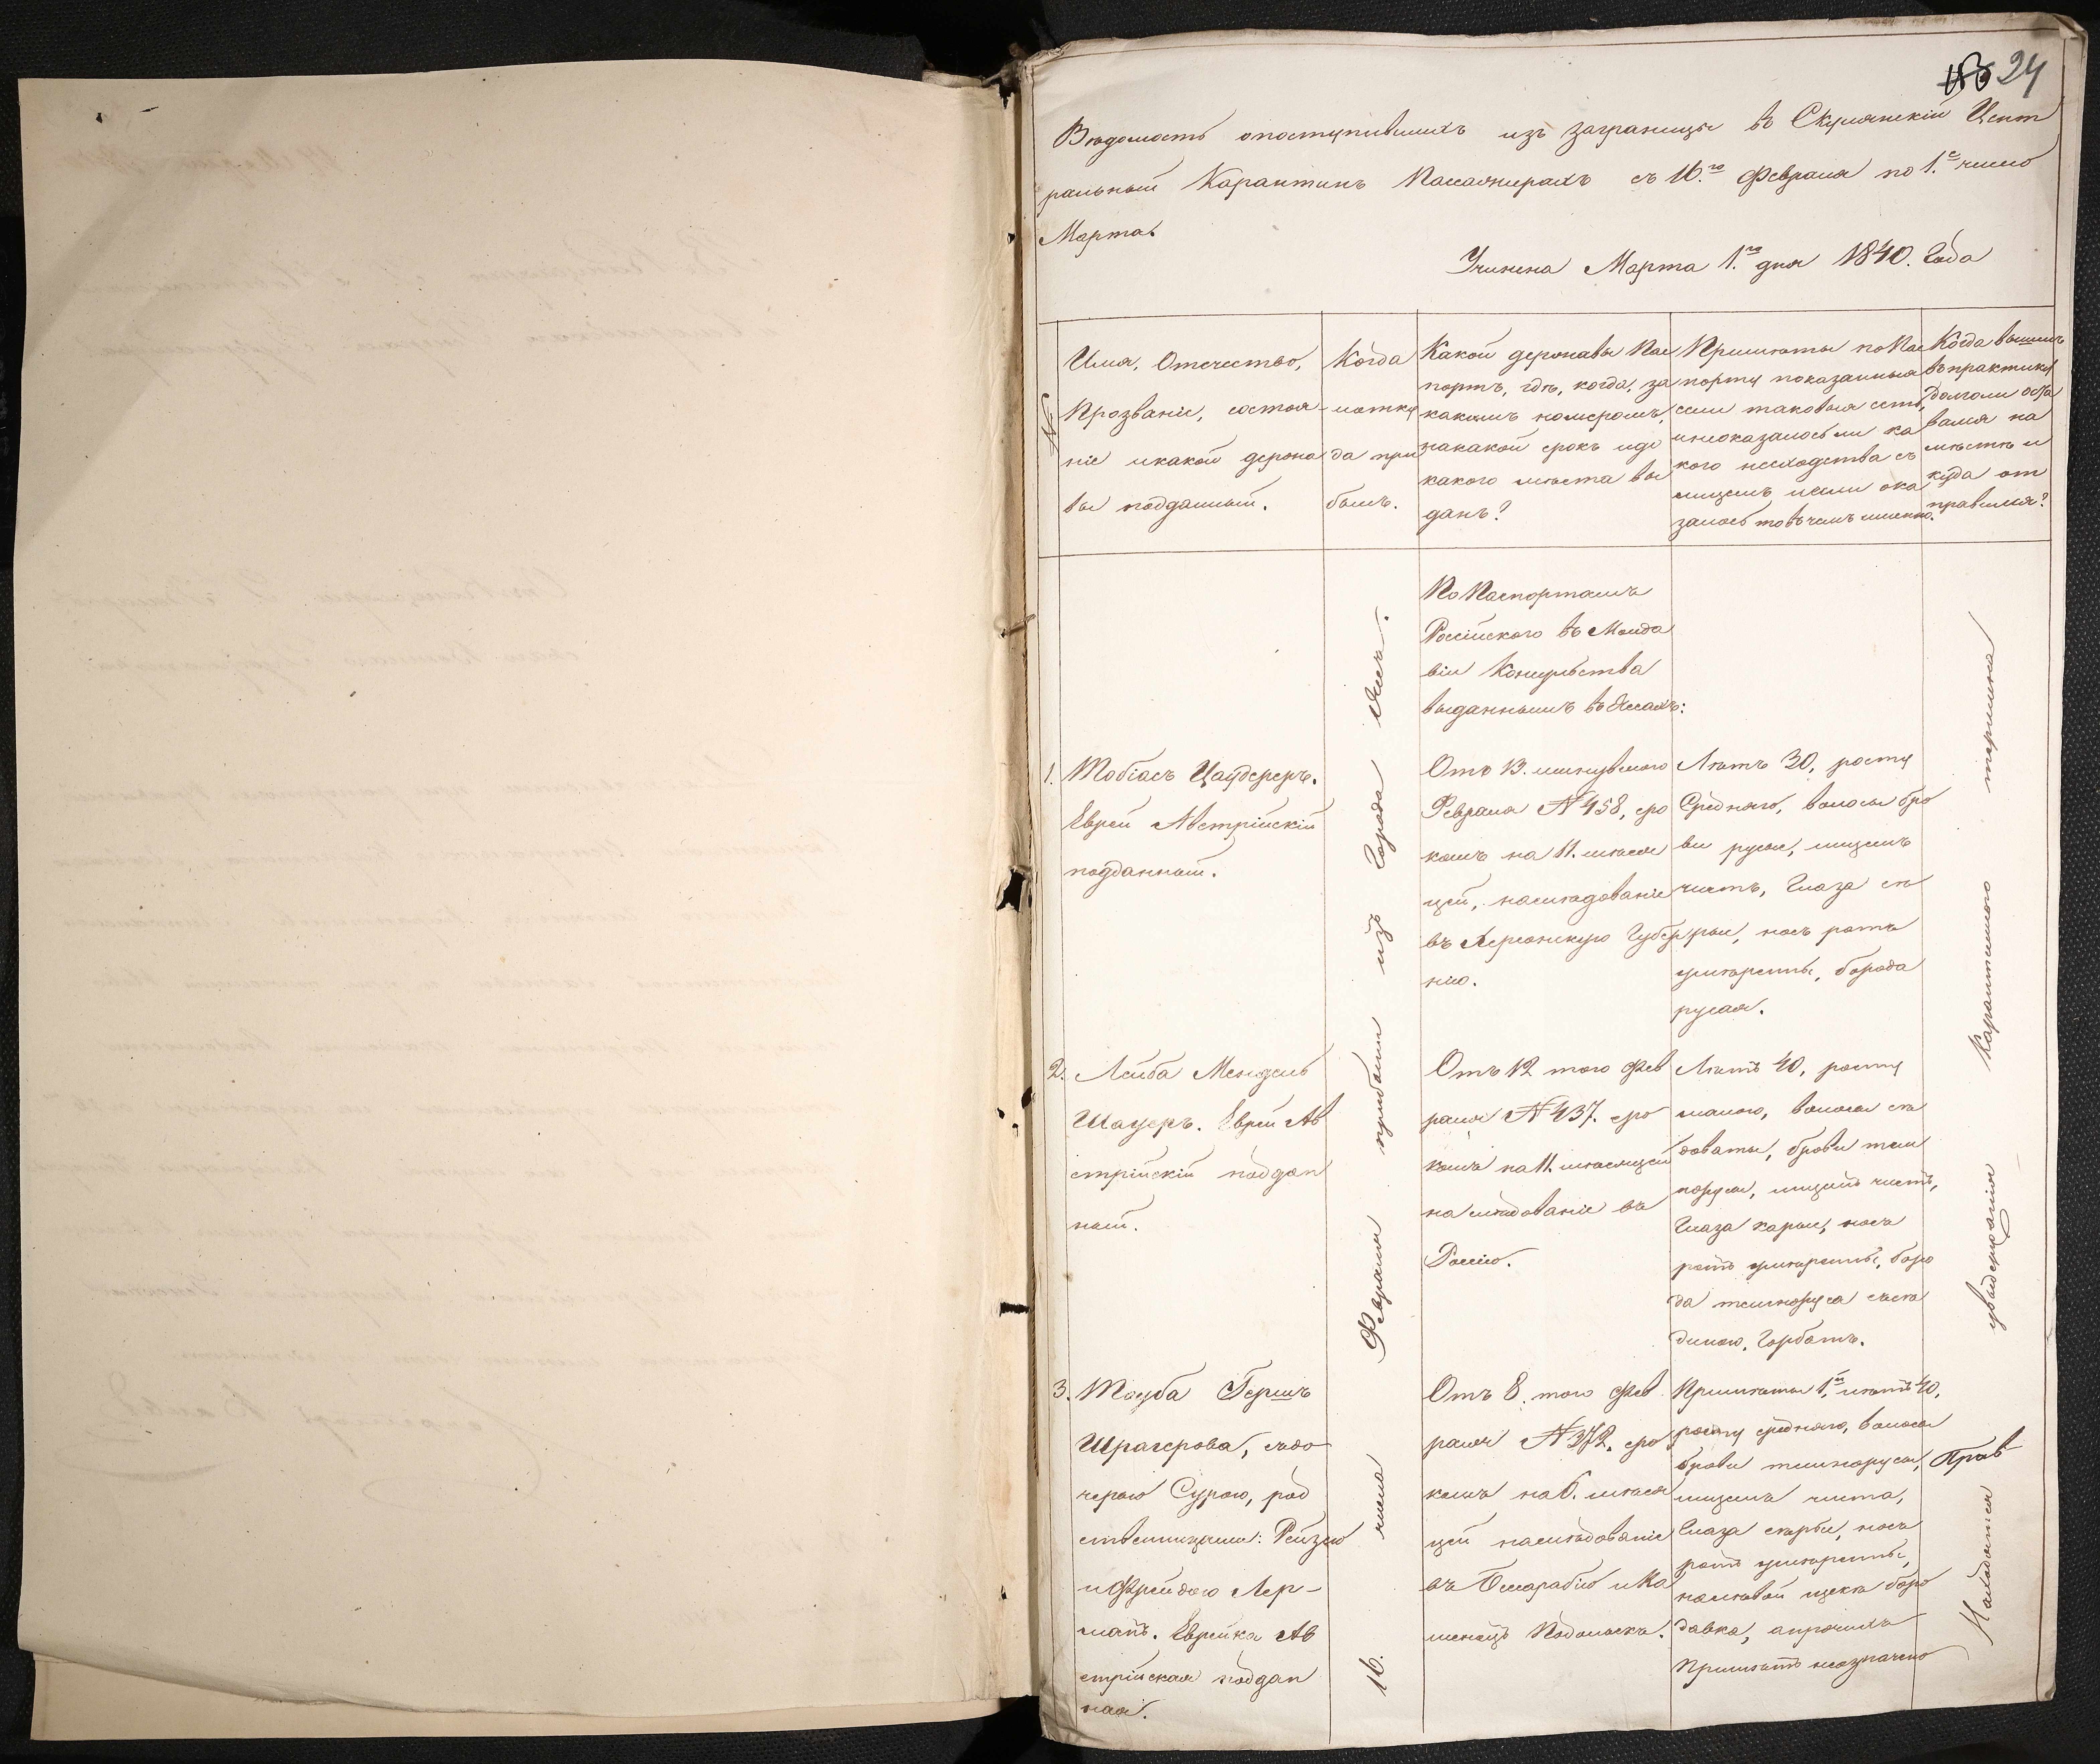 24
Вѣдомость опоступившихъ изъ заграницы въ Скулянскій Цент
ральный Карантинъ Пассажирахъ съ 16.го Февраля по 1.е число
Марта.
Учинена Марта 1.го дня 1840. Года
№
Имя, Отечество,
Прозваніе, состоя-
ніе икакой держа
вы подданный.
Когда
иотку
да при
былъ.
Какой державы Пас
портъ, гдѣ, когда, за
какимъ номеромъ,
накакой срокъ идо
какого мѣста вы
данъ?
Примѣты поПас
порту показанныя
если таковыя есть,
инеоказалось ли ка
кого несходства съ
лицемъ иели ока
залось товъчемъ именно.
Когда вышелъ
въпрактику
долголи оста
вался на
мѣстѣ и
куда от
правился?
По Паспортамъ
Россійского въ Молда
віи Консульства
выданнымъ въ Яссахъ:
1. Тобіасъ Цаудереръ.
Еврей Австрійскій
подданный.
Отъ 13. минувшого
Февраля № 458, сро
комъ на 11. мѣся
цей, наслѣдованіе
въ Херсонскую Губер
нію.
Лѣтъ 30, росту
Средняго, волосы бро
ви русые, лицемъ
чистъ, Глаза сѣ
рые, носъ ротъ
умѣренны, борода
русая.
2. Лейба Мендель
Шауеръ. Еврей Ав
стрійскій поддан
ный.
Отъ 12 того Фев
раля № 437. сро
комъ на 11. мѣсяцей
на слѣдованіе въ
Россію.
Лѣтъ 40, росту
малого, волосы сѣ
доваты, брови тем
норусы, лицемъ чистъ,
Глаза карые, носъ
ротъ умѣренны, боро
да темноруса съсѣ
диною, Горбатъ.
3. Тауба Гершъ
Шрагерова, съдо
черью Сурою, род
ственницами: Рейзею
иФрейдою Лер-
манъ. Еврейка Ав
стрійская поддан
ная.
Отъ 8. того Фев
раля № 372. сро
комъ на 6. мѣся
цей наслѣдованіе
въ Бесарабію иКа
менецъ Подольскъ.
Примѣты 1.й лѣтъ 40,
росту средняго, волосы
брови темнорусы,
лицемъ чиста,
Глаза сѣрые, носъ
ротъ умѣренны,
налѣвой щекѣ боро
давка, апрочихъ
Примѣтъ неозначено
16. числа Февраля прибыли изъ Города Яссъ.
Находятся увыдержанія Карантинного термина